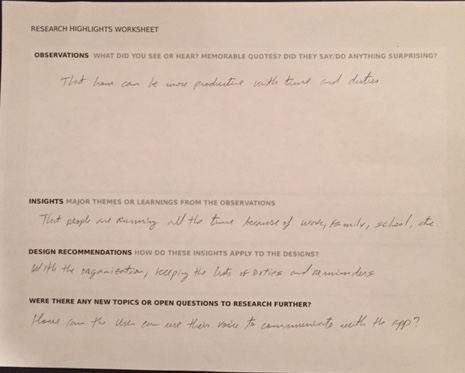 RESEARCH HIGHLIGHTS WORKSHEET
OBSERVATIONS WHAT DID YOU SEE OR HEAR? MEMORABLE QUOTES? DID THEY SAY/DO ANYTHING SURPRISING?
That how can be more productive with time and duties
INSIGHTS MAJOR THEMES OR LEARNINGS FROM THE OBSERVATIONS
That people are running all the time because of work, family, school, etc
DESIGN RECOMMENDATIONS HOW DO THESE INSIGHTS APPLY TO THE DESIGNS?
With the organization, keeping the lists of duties and reminders
WERE THERE ANY NEW TOPICS OR OPEN QUESTIONS TO RESEARCH FURTHER?
the user can use their voice to communicate with the app?